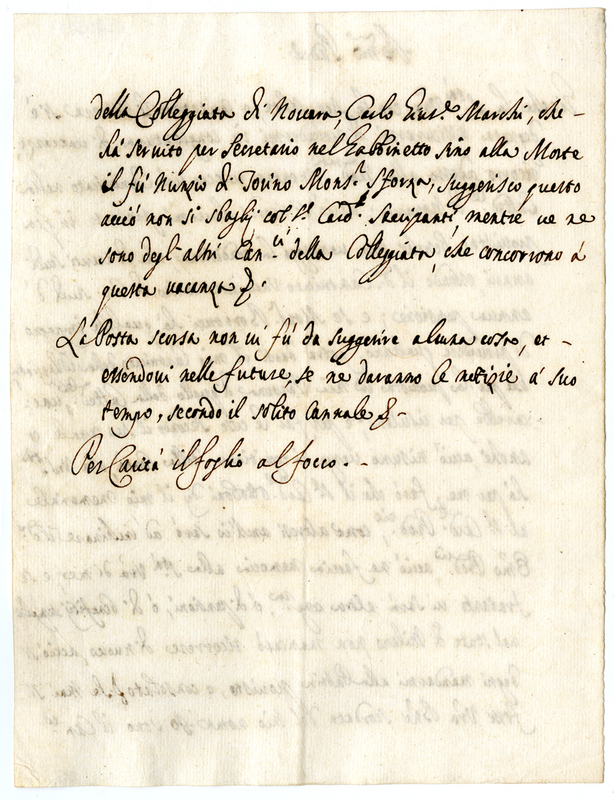 della Colleggiata di Nocera, Carlo Eius.e Marchi, che -
hà servito per Secretario nel Gabbinetto sino alla Morte
il fù Nunzio di Torino Mons.r Sforza, suggerisco questo
acciò non si sbaglj col S.r Card.e Sacripanti, mentre ve ne
sono degl'altri Can.ci della Colleggiata, che concorrono á
questa vacanza &.
La Posta scorsa non vi fù da suggerire alcuna cosa, et -
essendovi nelle future, se ne daranno le notizie á suo
tempo, secondo il solito Cannale & -
Per Carità il foglio al foco. -